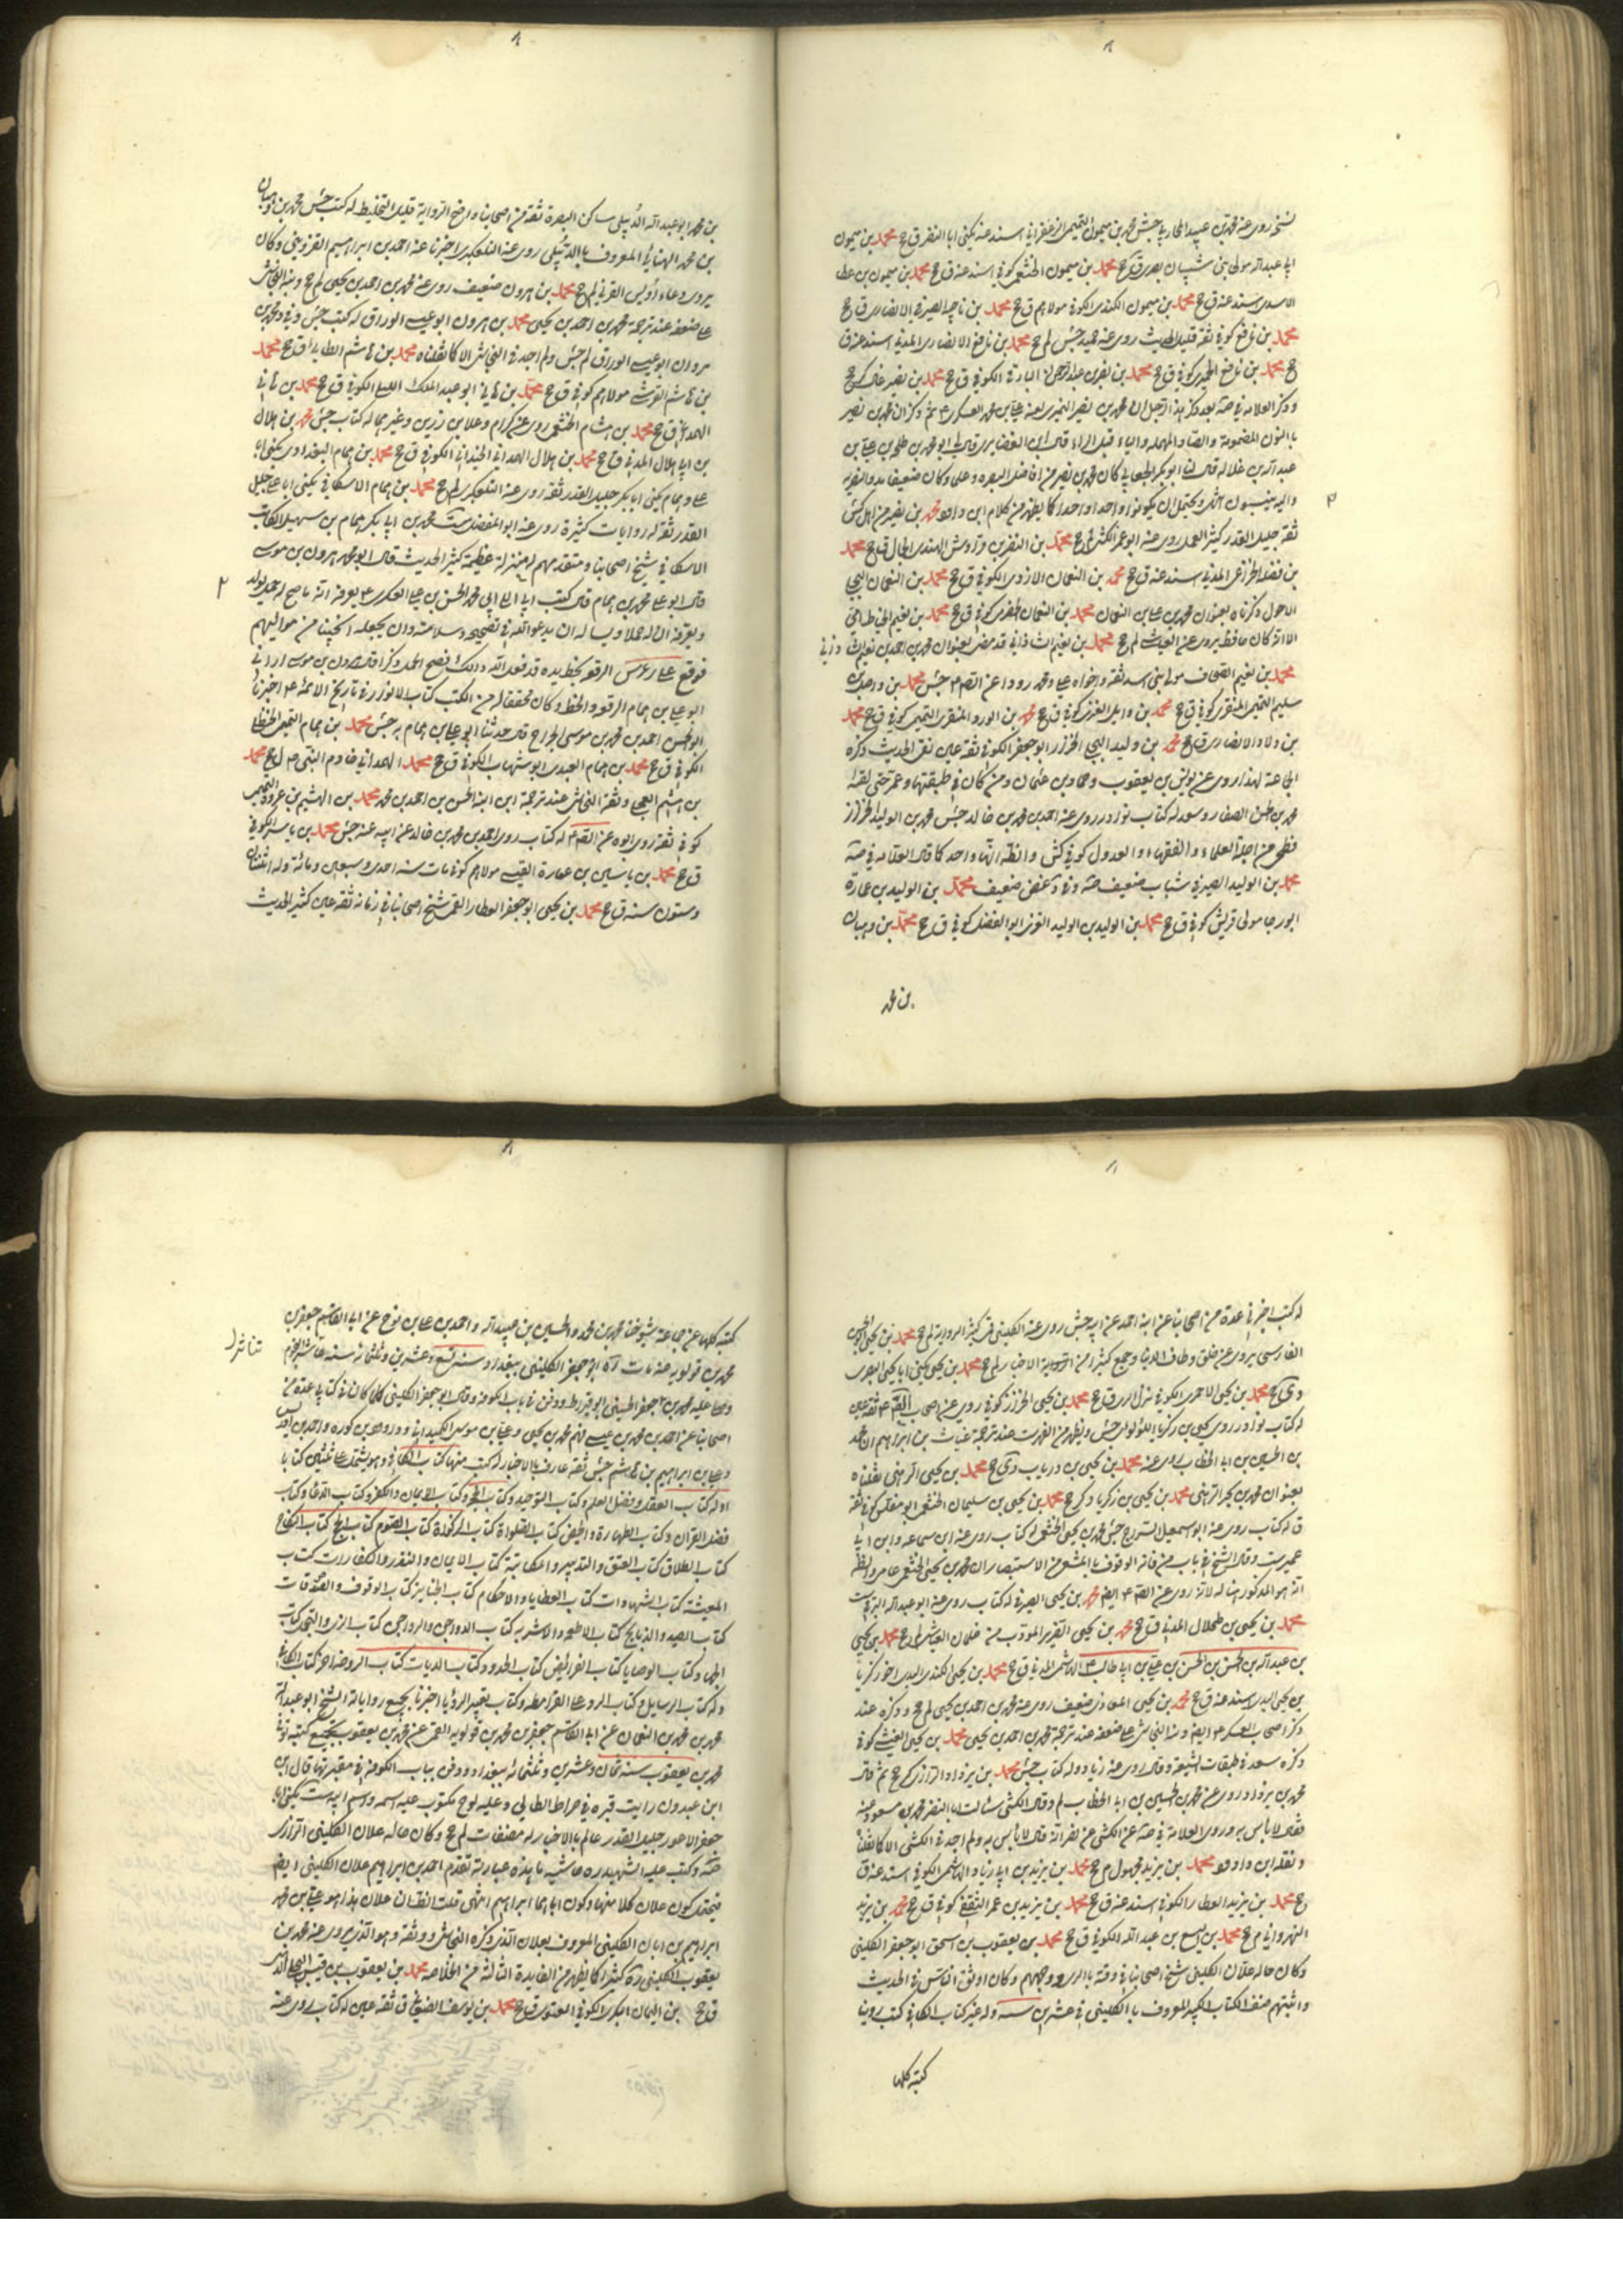 نسخة روى عنه محمد بن عبيد المحاربي جش محمد بن ميمون التميمي الزعفراني اسند عنه يكنى ابا النضر ق جخ محمد بن ميمون
ابو عبد الله مولى بني شيبان بصري ق جخ محمد بن ميمون الخثعمي كوفي اسند عنه ق جخ محمد بن ميمون بن عطا
الاسدي اسند عنه ق جخ محمد بن ميمون الكندي الكوفي مولاهم ق جخ محمد بن ناجية الصيرفي الانصاري ق جخ
محمد بن نافع كوفي ثقة قليل الحديث روى عنه حميد جش لم جخ محمد بن نافع الانصاري المدني اسند عنه ق
جخ محمد بن نافع الحميري كوفي ق جخ محمد بن نصر بن عبد الرحمن البارقي الكوفي ق جخ محمد بن نصير غال كر جخ
وذكر العلامة في صه بعد ذكر هذا الرجل ان محمد بن نصير النميري لعنه علي بن محمد العسكري ع ثم وذكر ان محمد بن نصير
بالنون المضمومة والصاد المهملة والياء قبل الراء قال ابن الغضايري قال لي ابو محمد بن طلحة بن علي بن
عبد الله بن غلالة قال لنا ابو بكر الجعابي كان محمد بن نصير من افاضل البصرة وعلما وكان ضعيفا بدو النصيرية
واليه ينسبون انتهى ويحتمل ان يكونوا واحدا واحدا كما يظهر من كلام ابن داود محمد بن نصير من اهل كش
ثقة جليل القدر كثير العلم روى عنه ابو عمرو الكشي لم جخ محمد بن النضر بن قرواش الهندي الجمال ق جخ محمد
بن نضلة الخزاعي المدني اسند عنه ق جخ محمد بن النعمان الازدي الكوفي ق جخ محمد بن النعمان البجلي
الاحول ذكرناه بعنوان محمد بن علي بن النعمان محمد بن النعمان الحضرمي كوفي ق جخ محمد بن نعيم الخياط عامي
الا انه كان حافظا يروي عنه العياشي لم جخ محمد بن نعيم الشاذاني قد مضى بعنوان محمد بن احمد بن نعيم الشاذاني
محمد بن نعيم الصحاف مولى بني اسد ثقة واخواه علي ومحمد رووا عن الصادق ع جش محمد بن واصل بن
سليم التميمي المنقري كوفي ق جخ محمد بن وابل الغنوي كوفي ق جخ محمد بن الورد المنقري التميمي كوفي ق جخ محمد
بن ولاد الانصاري ق جخ محمد بن وليد البجلي الخزاز ابو جعفر الكوفي ثقة عين نقي الحديث ذكره
الجماعة لهذا روى عن يونس بن يعقوب وحماد بن عثمان ومن كان في طبقتهما وعمر حتى لقيه
محمد بن الحسن الصفار وسعد له كتاب نوادر روى عنه احمد بن محمد بن خالد جش محمد بن الوليد الخزاز
فطحي من اجلة العلماء والفقهاء والعدول كوفي كش والظاهر انهما واحد كما قال العلامة في صه
محمد بن الوليد الصيرفي شباب ضعيف صه وفي د غض ضعيف محمد بن الوليد بن عمارة
ابو رجا مولى قريش كوفي ق جخ محمد بن الوليد بن الوليد الغنوي ابو الفضل كوفي ق جخ محمد بن وهبان
بن محمد
بن محمد ابو عبد الله الدبيلي ساكن البصرة ثقة من اصحابنا واضح الرواية قليل التخليط له كتب جش محمد بن وهبان
بن محمد الهنائي المعروف بالدبيلي روى عنه التلعكبري اخبرنا عنه احمد بن ابراهيم القزويني وكان
يروي دعاء اويس القرني لم جخ محمد بن هرون ضعيف روى عنه محمد بن احمد بن يحيى لم جخ ونبه النجاشي
على ضعفه عند ترجمة محمد بن احمد بن يحيى محمد بن هرون ابو عيسى الوراق له كتب جش وفي د محمد بن
هرون ابو عيسى الوراق لم جش ولم اجد في النجاشي الا كما نقلناه محمد بن هاشم الطائي ق جخ محمد
بن هاشم القرشي مولاهم كوفي ق جخ محمد بن هاني ابو عبد الملك الليثي الكوفي ق جخ محمد بن هاني
الهمداني ق جخ محمد بن هشام الخثعمي روى عن كرام وعلا بن رزين وغيرهما له كتاب جش محمد بن هلال
بن ابي هلال المدني ق جخ محمد بن هلال الهمداني الخيواني الكوفي ق جخ محمد بن همام البغدادي يكنى ابا
علي وهمام يكنى ابا بكر جليل القدر ثقة روى عنه التلعكبري لم جخ محمد بن همام الاسكافي يكنى ابا علي جليل
القدر ثقة له روايات كثيرة روى عنه ابو المفضل ست محمد بن ابي بكر همام بن سهيل الكاتب
الاسكافي شيخ اصحابنا ومتقدمهم له منزلة عظيمة كثير الحديث قال ابو محمد هرون بن موسى
قال ابو علي محمد بن همام قال كتب ابي الى ابي محمد الحسن بن علي العسكري ع يعرفه انه ما صح له حمل بولد
ويعرفه ان له حملا ويساله ان يدعو الله في تصحيحه وسلامته وان يجعله ذكرا نجيبا من مواليهم
فوقع على راس الرقعة بخط يده قد فعل الله ذلك فصح الحمل ذكرا قال هرون بن موسى اراني
ابو علي بن همام الرقعة والخط وكان محققا له من الكتب كتاب الانوار في تاريخ الائمة ع اخبرنا
ابو الحسن احمد بن محمد بن موسى الجراح قال حدثنا ابو علي بن همام به جش محمد بن همام التيمي الحنظلي
الكوفي ق جخ محمد بن همام العبدي ابو شهاب الكوفي ق جخ محمد الهمداني خادم النبي ص ل جخ محمد
بن هيثم العجلي وثقه النجاشي عند ترجمة ابن ابنه الحسن بن احمد بن محمد محمد بن الهيثم بن عروة التميمي
كوفي ثقة روى ابوه عن الصادق ع له كتاب روى احمد بن محمد بن خالد عن ابيه عنه جش محمد بن ياسر الكوفي
ق جخ محمد بن ياسين بن عمارة القيسي مولاهم كوفي مات سنة احدى وسبعين ومائة وله اثنتان
وستون سنة ق جخ محمد بن يحيى ابو جعفر العطار القمي شيخ اصحابنا في زمانه ثقة عين كثير الحديث
له كتب اخبرني عدة من اصحابنا عن ابنه احمد عن ابيه جش روى عنه الكليني قمي كثير الرواية لم جخ محمد بن يحيى ابو الحسن
الفارسي يروي عن خلق وطاف الدنيا وجمع كثيرا من الاخبار لم جخ محمد بن يحيى يكنى ابا يحيى البصري
دي جخ محمد بن يحيى الاحمري الكوفي نزل الري ق جخ محمد بن يحيى الخزاز كوفي روى عن اصحاب الصادق ع ثقة عين
له كتاب نوادر روى يحيى بن زكريا اللؤلؤي جش ويظهر من الفهرست عند ترجمة غياث بن ابراهيم ان محمد
بن الحسين بن ابي الخطاب روى عنه محمد بن يحيى بن درياب دي جخ محمد بن يحيى الرهني نقلناه
بعنوان محمد بن بحر الرهني محمد بن يحيى بن زكريا د كر جخ محمد بن يحيى بن سليمان الخثعمي ابو مفلس كوفي ثقة
ق له كتاب روى عنه ابو اسمعيل السراج جش محمد بن يحيى الخثعمي له كتاب روى عنه ابن سماعة وابن ابي
عمير ست وقال الشيخ في باب من فاته الوقوف بالمشعر من الاستبصار ان محمد بن يحيى الخثعمي عامي والظاهر
انه هو المذكور هنا لانه روى عن الصادق ع ايضا محمد بن يحيى الصيرفي له كتاب روى عنه ابو عبد الله البرقي ست
محمد بن يحيى بن طحلال المدني ق جخ محمد بن يحيى القزير المؤدب من غلمان العياشي لم جخ محمد بن يحيى
بن عبد الله بن الحسن بن الحسن بن علي بن ابي طالب ع الهاشمي المدني ق جخ محمد بن يحيى الكندي البدي اخو زكريا
بن يحيى البدي اسند عنه ق جخ محمد بن يحيى المعاذي ضعيف روى عنه محمد بن احمد بن يحيى لم جخ وذكره عند
ذكر اصحاب العسكري ع ايضا ونبه النجاشي على ضعفه عند ترجمة محمد بن احمد بن يحيى محمد بن يحيى المعيني كوفي
ذكره سعد في طبقات الشيعة وقال روى عنه زياد وله كتاب جش محمد بن يزداد الرازي كر جخ ثم قال
محمد بن يزداد روى عن محمد بن الحسين بن ابي الخطاب لم وقال الكشي سالت ابا النضر محمد بن مسعود عنه
فقال لا باس به وروى العلامة في صه عن الكشي عن نصر انه قال لا باس به ولم اجد في الكشي الا كما نقلنا
ونقله ابن داود محمد بن يزيد مجهول م جخ محمد بن يزيد بن ابي زياد الهاشمي الكوفي اسند عنه ق
جخ محمد بن يزيد العطار الكوفي اسند عنه ق جخ محمد بن يزيد بن عمر الثقفي كوفي ق جخ محمد بن يزيد
النهرواني م جخ محمد بن يسع بن عبد الله الكوفي ق جخ محمد بن يعقوب بن اسحق ابو جعفر الكليني
وكان خاله علان الكليني شيخ اصحابنا في وقته بالري ووجههم وكان اوثق الناس في الحديث
واثبتهم صنف الكتاب الكبير المعروف بالكليني في عشرين سنة وله غير كتاب الكافي كتب روينا
كتبه كلها
كتبه كلها عن جماعة شيوخنا محمد بن محمد والحسين بن عبيد الله واحمد بن علي بن نوح عن ابي القاسم جعفر بن
محمد بن قولويه عنه مات ابو جعفر الكليني ببغداد سنة تسع وعشرين وثلثمائة سنة تناثر النجوم
تناثر
وصلى عليه محمد بن جعفر الحسيني ابو قيراط ودفن في باب الكوفة وقال ابو جعفر الكليني كلما كان في كتابي عدة من
اصحابنا عن احمد بن محمد بن عيسى فهم محمد بن يحيى وعلي بن موسى الكميداني وداود بن كورة واحمد بن ادريس
وعلي بن ابراهيم بن هاشم جش ثقة عارف بالاخبار له كتب منها كتاب الكافي وهو يشتمل على ثلثين كتابا
اوله كتاب العقل وفضل العلم وكتاب التوحيد وكتاب الحجة وكتاب الايمان والكفر وكتاب الدعا وكتاب
فضل القران وكتاب الطهارة والحيض كتاب الصلوة كتاب الزكوة كتاب الصوم كتاب الحج كتاب النكاح
كتاب الطلاق كتاب العتق والتدبير والمكاتبة كتاب الايمان والنذور والكفارات كتاب
المعيشة كتاب الشهادات كتاب القضايا والاحكام كتاب الجنايز كتاب الوقوف والصدقات
كتاب الصيد والذبايح كتاب الاطعمة والاشربة كتاب الدواجن والرواجن كتاب الزي والتجمل كتاب
الجهاد كتاب الوصايا كتاب الفرايض كتاب الحدود كتاب الديات كتاب الروضة اخر كتاب الكافي
وله كتاب الرسايل وكتاب الرد على القرامطة وكتاب تعبير الرؤيا اخبرنا بجميع رواياته الشيخ ابو عبد الله
محمد بن محمد بن النعمان عن ابي القاسم جعفر بن محمد بن قولويه القمي عن محمد بن يعقوب بجميع كتبه توفي
محمد بن يعقوب سنة ثمان وعشرين وثلثمائة ببغداد ودفن بباب الكوفة في مقبرتها قال ابن
ابن عبدون رايت قبره في صراط الطائي وعليه لوح مكتوب عليه اسمه واسم ابيه ست يكنى ابا
جعفر الاعور جليل القدر عالم بالاخبار له مصنفات لم جخ وكان خاله علان الكليني الرازي
صه وكتب عليه الشهيد ره حاشية ما هذه عبارته تقدم احمد بن ابراهيم علان الكليني ايضا
فيحتمل كون علان كلا منهما وكون اباهما ابراهيم انتهى قلت الظاهر ان علان هذا هو علي بن محمد
ابراهيم بن ابان الكليني المعروف بعلان الذي ذكره النجاشي ووثقه وهو الذي يروي عنه محمد بن
يعقوب الكليني ره كثيرا كما يظهر من الفايدة الثالثة من الخلاصة محمد بن يعقوب بن قيس البجلي
ق جخ بن اليمان البكري الكوفي ق جخ محمد بن يوسف الصنعاني ق ثقة عين له كتاب روى عنه